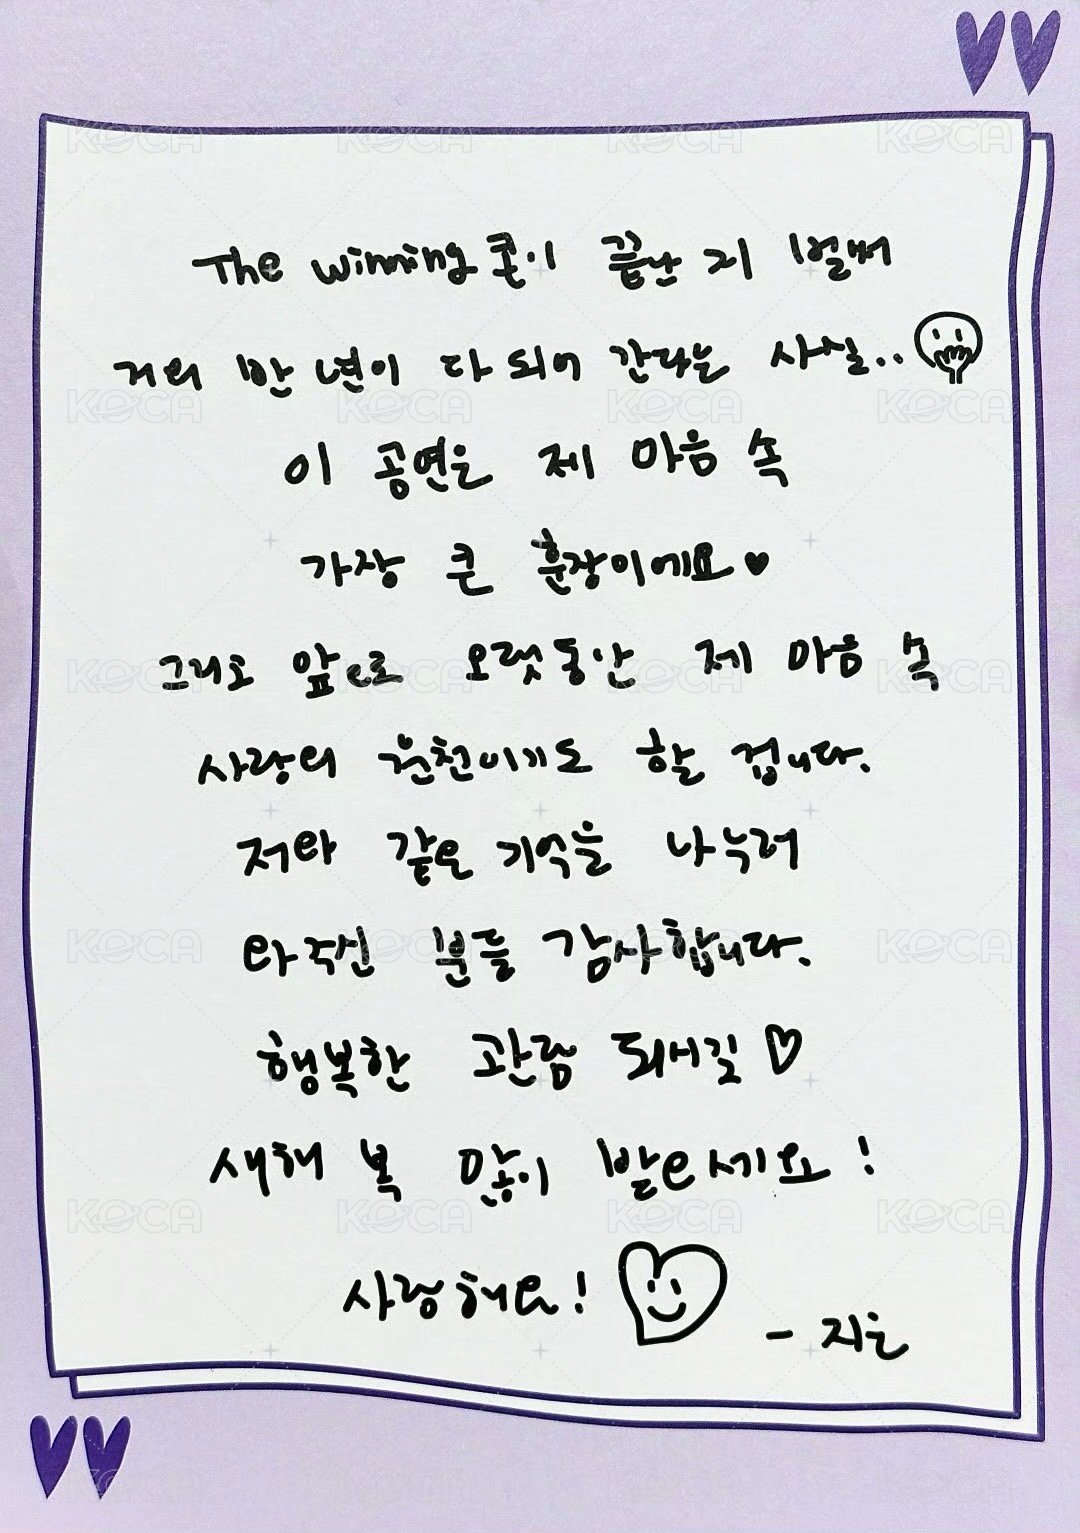 The winning 콘이 끝난 지 벌써
거의 반 년이 다 되어 간다는 사실..
이 공연은 제 마음 속
가장 큰 훈장이에요♥
그리고 앞으로 오랫동안 제 마음 속
사랑의 원천이기도 할 겁니다.
저와 같은 기억을 나누러
와주신 분들 감사합니다.
행복한 관람 되시길♡
새해 복 많이 받으세요!
사랑해요!
- 지은
KOCA